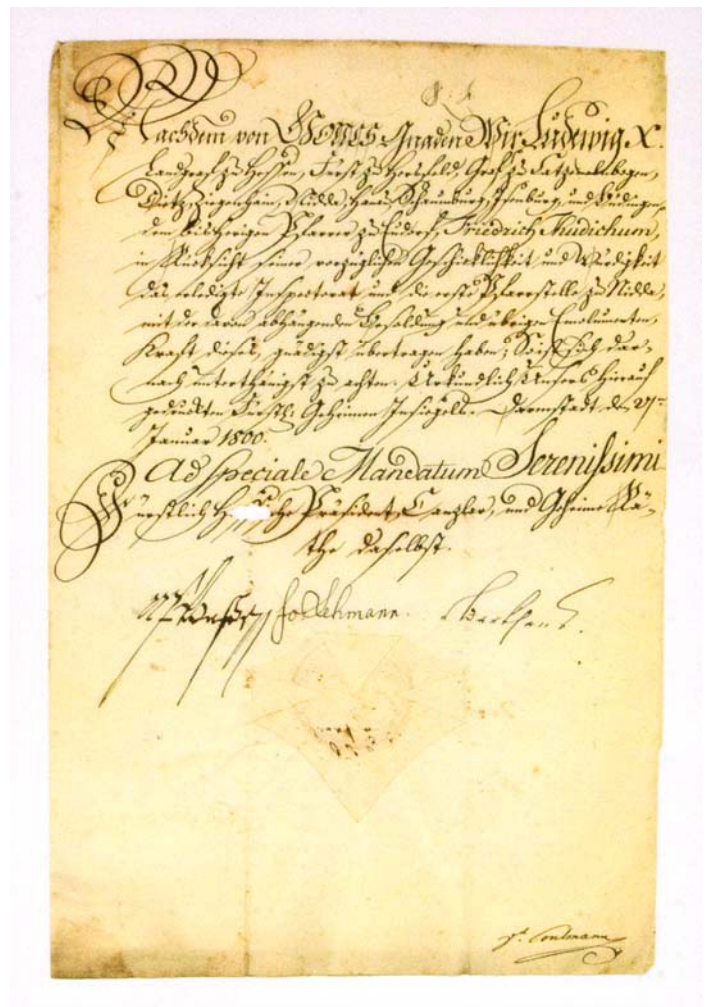 Nachdem von GOTTES Gnaden Wir Ludwig X.
Landgraf zu Hessen, Fürst zu Hersfeld, Graf zu Catzenelnbogen,
Dietz, Ziegenhain, Nidda, Hanau, Schaumburg, Isenburg, und Büdingen,
dem bisherigen Pfarrer zu Eudorf, Friedrich Mudichum,
in Rücksicht seiner vorzüglichen Geschicklichkeit und Würdigkeit
das erledigte Inspectorat und die erste Pfarrstelle zu Nidda,
mit der davon abhängenden Besoldung und übrigen Emolumenten,
Kraft dieses, gnädigst übertragen haben; So ist sich dar-
nach unterthänigst zu achten. Urkundlich Unsers hierauf
gedruckten Fürstl. Geheimen Insiegels. Darmstadt, den 27ten
Januar 1800.
Ad Speciale Mandatum Serenissimi
Fürstlich H che Präsident, Canzler, und Geheime Rä-
the daselbst.
Lehmann.